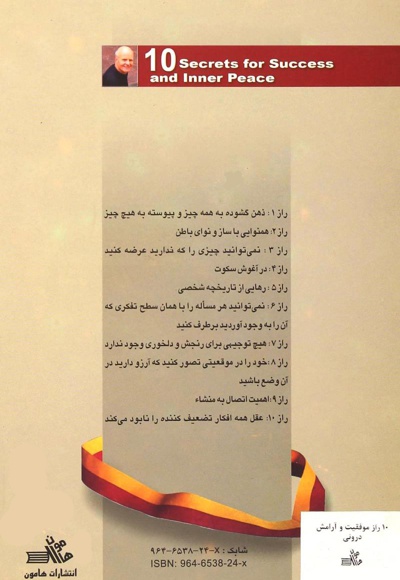 10 Secrets for Success
and Inner Peace
راز ۱: ذهن گشوده به همه چیز و پیوسته به هیچ چیز
راز ۲: همنوایی با ساز و نوای باطن
راز ۳ : نمی‌توانید چیزی را که ندارید عرضه کنید
راز ۴: در آغوش سکوت
راز ۵: رهایی از تاریخچه شخصی
راز ۶: نمی‌توانید هر مسأله را با همان سطح تفکری که
آن را به وجود آوردید برطرف کنید
راز ۷: هیچ توجیهی برای رنجش و دلخوری وجود ندارد
راز ۸: خود را در موقعیتی تصور کنید که آرزو دارید در
آن وضع باشید
راز ۹: اهمیت اتصال به منشاء
راز ۱۰: عقل همه افکار تضعیف کننده را نابود می‌کند
۱۰ راز موفقیت و آرامش
درونی
شابک : ۹۶۴-۶۵۳۸-۲۴-X
ISBN: 964-6538-24-x
هامون
انتشارات هامون